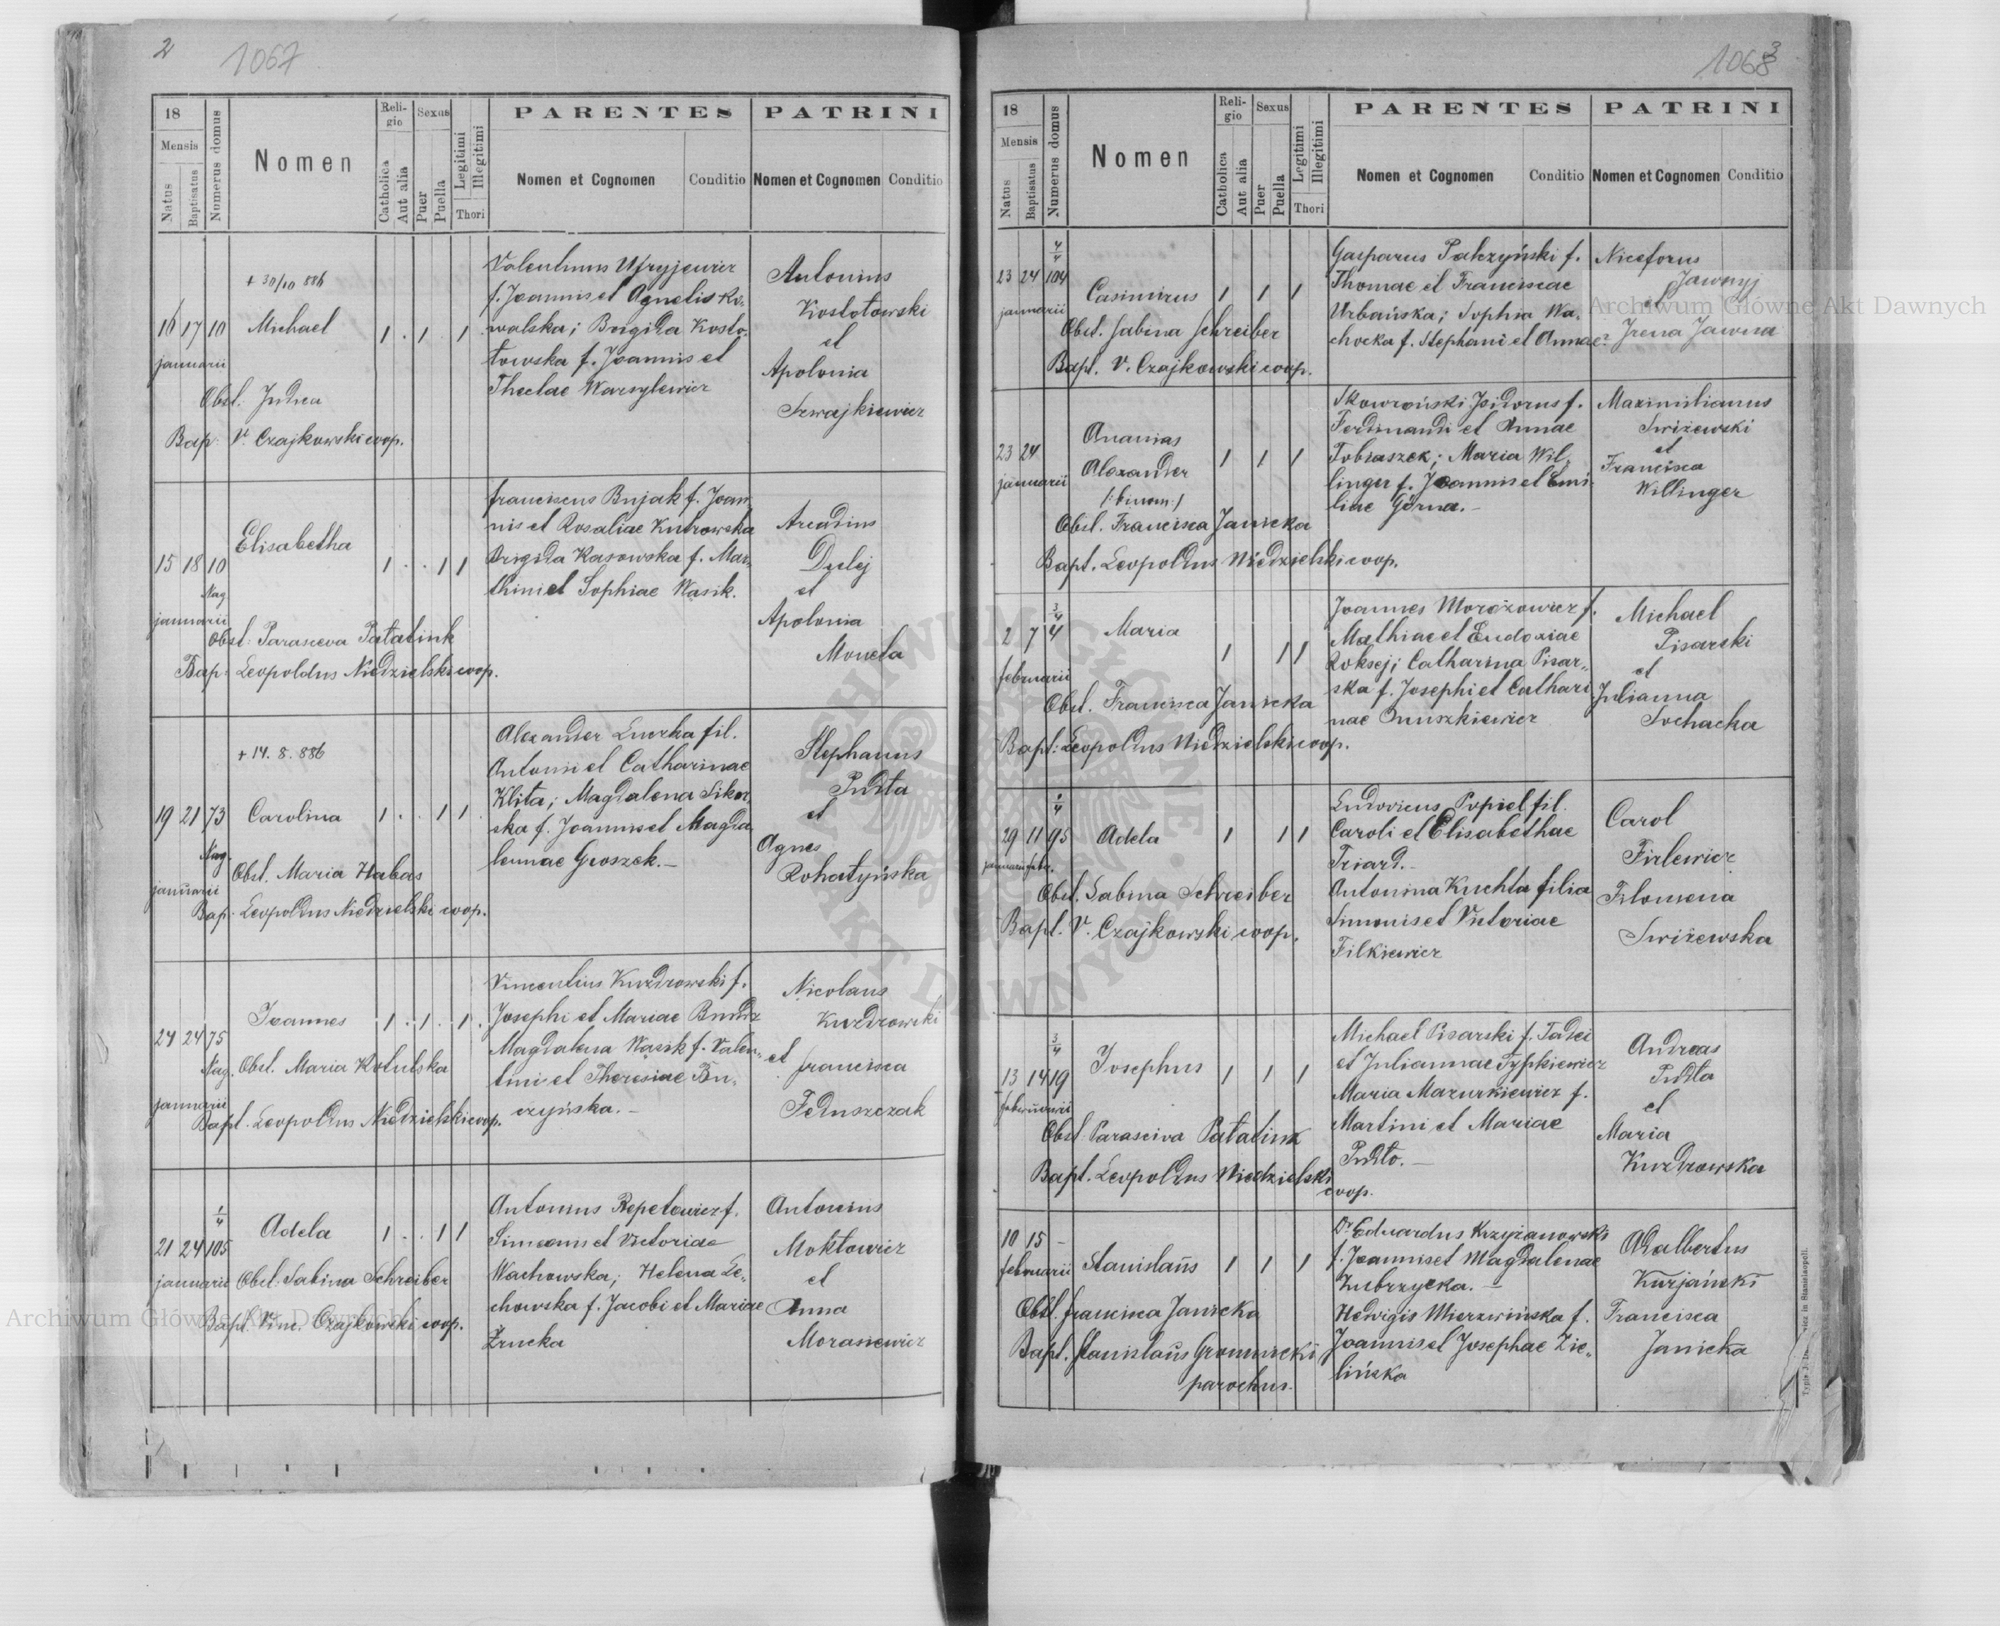 2
1067
18
Mensis
Natus
Baptisatus
Numerus domus
Nomen
Religio
Catholica
Aut alia
Sexus
Puer
Puella
Legitimi
Illegitimi
Thori
PARENTES
Nomen et Cognomen
Conditio
PATRINI
Nomen et Cognomen
Conditio
+ 30/10 886
16 17 10 Michael 1 . 1 . 1
januarii
Obst. Judea
Bap: V. Czajkowski coop.
Valentinus Ufryjewicz
f. Joannis et Agnetis Ko-
walska; Brigida Kosto-
towska f. Joannis et
Theclae Warsylewicz
Antonius
Kostotowski
et
Apolonia
Szwajkiewicz
15 18 10 Elisabetha 1 . . 1 1
Nag
januarii
Obst: Parasceva Patatink
Bap: Leopoldus Niedzielski coop.
Franciscus Bujak f. Joan-
nis et Rosaliae Kutrowska
Brigida Kasowska f. Mar-
thini et Sophiae Wasik.
Arcadius
Dulej
et
Apolonia
Moweta
+ 14. 8. 886
19 21 73 Carolina 1 . . 1 1
Nag.
januarii
Obst. Maria Habas
Bap: Leopoldus Niedzielski coop.
Alexander Luczka fil.
Antoni et Catharinae
Klita; Magdalena Sikor-
ska f. Joannis et Magda-
lennae Groszek.—
Stephanus
Pudta
et
Agnes
Rohatyńska
24 24 75 Joannes 1 . 1 . 1 .
Nag. Obst. Maria Kotulska
januarii
Bapt. Leopoldus Niedzielski coop.
Vincentius Kuzdrowski f.
Josephi et Mariae Bundz
Magdalena Wasik f. Valen-
tini et Theresiae Bu-
czyńska.—
Nicolaus
Kuzdrowski
et Francisca
Feduszczak
1/4
21 24 105 Adela 1 . . 1 1
januarii Obst: Sabina Schreiber
Bapt. Vinc. Czajkowski coop.
Antonius Repetowicz f.
Simeoni et Victoriae
Wachowska; Helena Le-
chowska f. Jacobi et Mariae
Żrucka
Antonius
Moktowicz
et
Anna
Morasiewicz
3
1068
18
Mensis
Natus
Baptisatus
Numerus domus
Nomen
Religio
Catholica
Aut alia
Sexus
Puer
Puella
Legitimi
Illegitimi
Thori
PARENTES
Nomen et Cognomen
Conditio
PATRINI
Nomen et Cognomen
Conditio
4/4
23 24 104 Casimirus 1 1 1
januarii
Obst. Sabina Schreiber
Bapt. V. Czajkowski coop.
Gasparus Pakzyński f.
Thomae et Franciscae
Urbańska; Sophia Wa-
chocka f. Stephani et Annae
Niceforus
Jawnyj
et
Irena Jawna
23 24 Ananias
Alexander 1 1 1
januarii
/:binom:/
Obst. Francisca Janicka
Bapt. Leopoldus Niedzielski coop.
Skowroński Isidorus f.
Ferdinandi et Annae
Tobiaszek; Maria Wil-
linger f. Joannis et Emi-
liae Górna.—
Maximilianus
Swiżewski
et
Francisca
Willinger
3/4
2 7 4 Maria 1 1 1
februarii
Obst. Francisca Janicka
Bapt: Leopoldus Niedzielski coop.
Joannes Morozowicz f.
Mathiae et Eudoxiae
Roksej; Catharina Pisar-
ska f. Josephi et Cathari-
nae Onuszkiewicz
Michael
Pisarski
et
Julianna
Sochacka
1/4
29 11 95 Adela 1 1 1
januarii febr.
Obst. Sabina Schreiber
Bapt. V. Czajkowski coop.
Ludovicus Popiel fil.
Caroli et Elisabethae
Triard.—
Antonina Kuchta filia
Simonis et Victoriae
Filkiewicz
Carol
Firlewicz
Filomena
Swiżewska
3/4
13 14 19 Josephus 1 1 1
februarii
Obst: Parasceva Patatink
Bapt. Leopoldus Niedzielski
coop.
Michael Pisarski f. Tadei
et Juliannae Typkiewicz
Maria Mazurkiewicz f.
Martini et Mariae
Pudto.—
Andreas
Pudta
et
Maria
Kuzdrowska
10 15 – Stanislaus 1 1 1
februarii
Obst. Francisca Janicka
Bapt. Stanislaus Gromnicki
parochus.
Dr. Eduardus Krzyżanowski
f. Joannis et Magdalenae
Zubrzycka.—
Hedvigis Mierzwińska f.
Joannis et Josephae Zie-
lińska
Adalbertus
Kurjański
Francisca
Janicka
Archiwum Główne Akt Dawnych
Archiwum Główne Akt Dawnych
ARCHIWUM GŁÓWNE AKT DAWNYCH